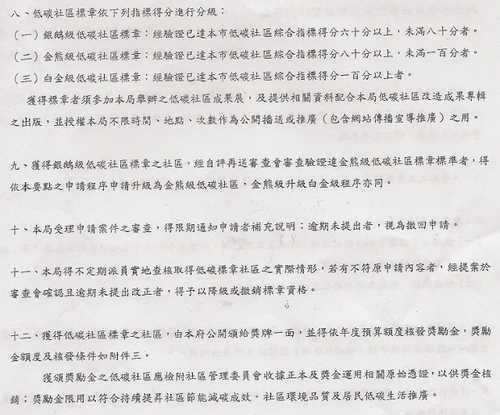 八、低碳社區標章依下列指標得分進行分級：
（一）銀鵝級低碳社區標章：經驗證已達本市低碳社區綜合指標得分六十分以上，未滿八十分者。
（二）金熊級低碳社區標章：經驗證已達本市低碳社區綜合指標得分八十分以上，未滿一百分者。
（三）白金級低碳社區標章：經驗證已達本市低碳社區綜合指標得分一百分以上者。
獲得標章者須參加本局舉辦之低碳社區成果展，及提供相關資料配合本局低碳社區改造成果專輯
之出版，並授權本局不限時間、地點、次數作為公開播送或推廣（包含網站傳播宣導推廣）之用。
九、獲得銀鵝級低碳社區標章之社區，經自評再送審查會審查驗證達金熊級低碳社區標章標準者，得
依本要點之申請程序申請升級為金熊級低碳社區，金熊級升級白金級程序亦同。
十、本局受理申請案件之審查，得限期通知申請者補充說明；逾期未提出者，視為撤回申請。
十一、本局得不定期派員實地查核取得低碳標章社區之實際情形，若有不符原申請內容者，經提業於
審查會確認且逾期未提出改正者，得予以降級或撤銷標章資格。
十二、獲得低碳社區標章之社區，由本府公開頒給獎牌一面，並得依年度預算額度核發獎勵金，獎勵
金額度及核發條件如附件三。
獲頒獎勵金之低碳社區應檢附社區管理委員會收據正本及獎金運用相關原始憑證，以供獎金核
銷；獎勵金限用以符合持續提昇社區節能減碳成效、社區環境品質及居民低碳生活推廣。